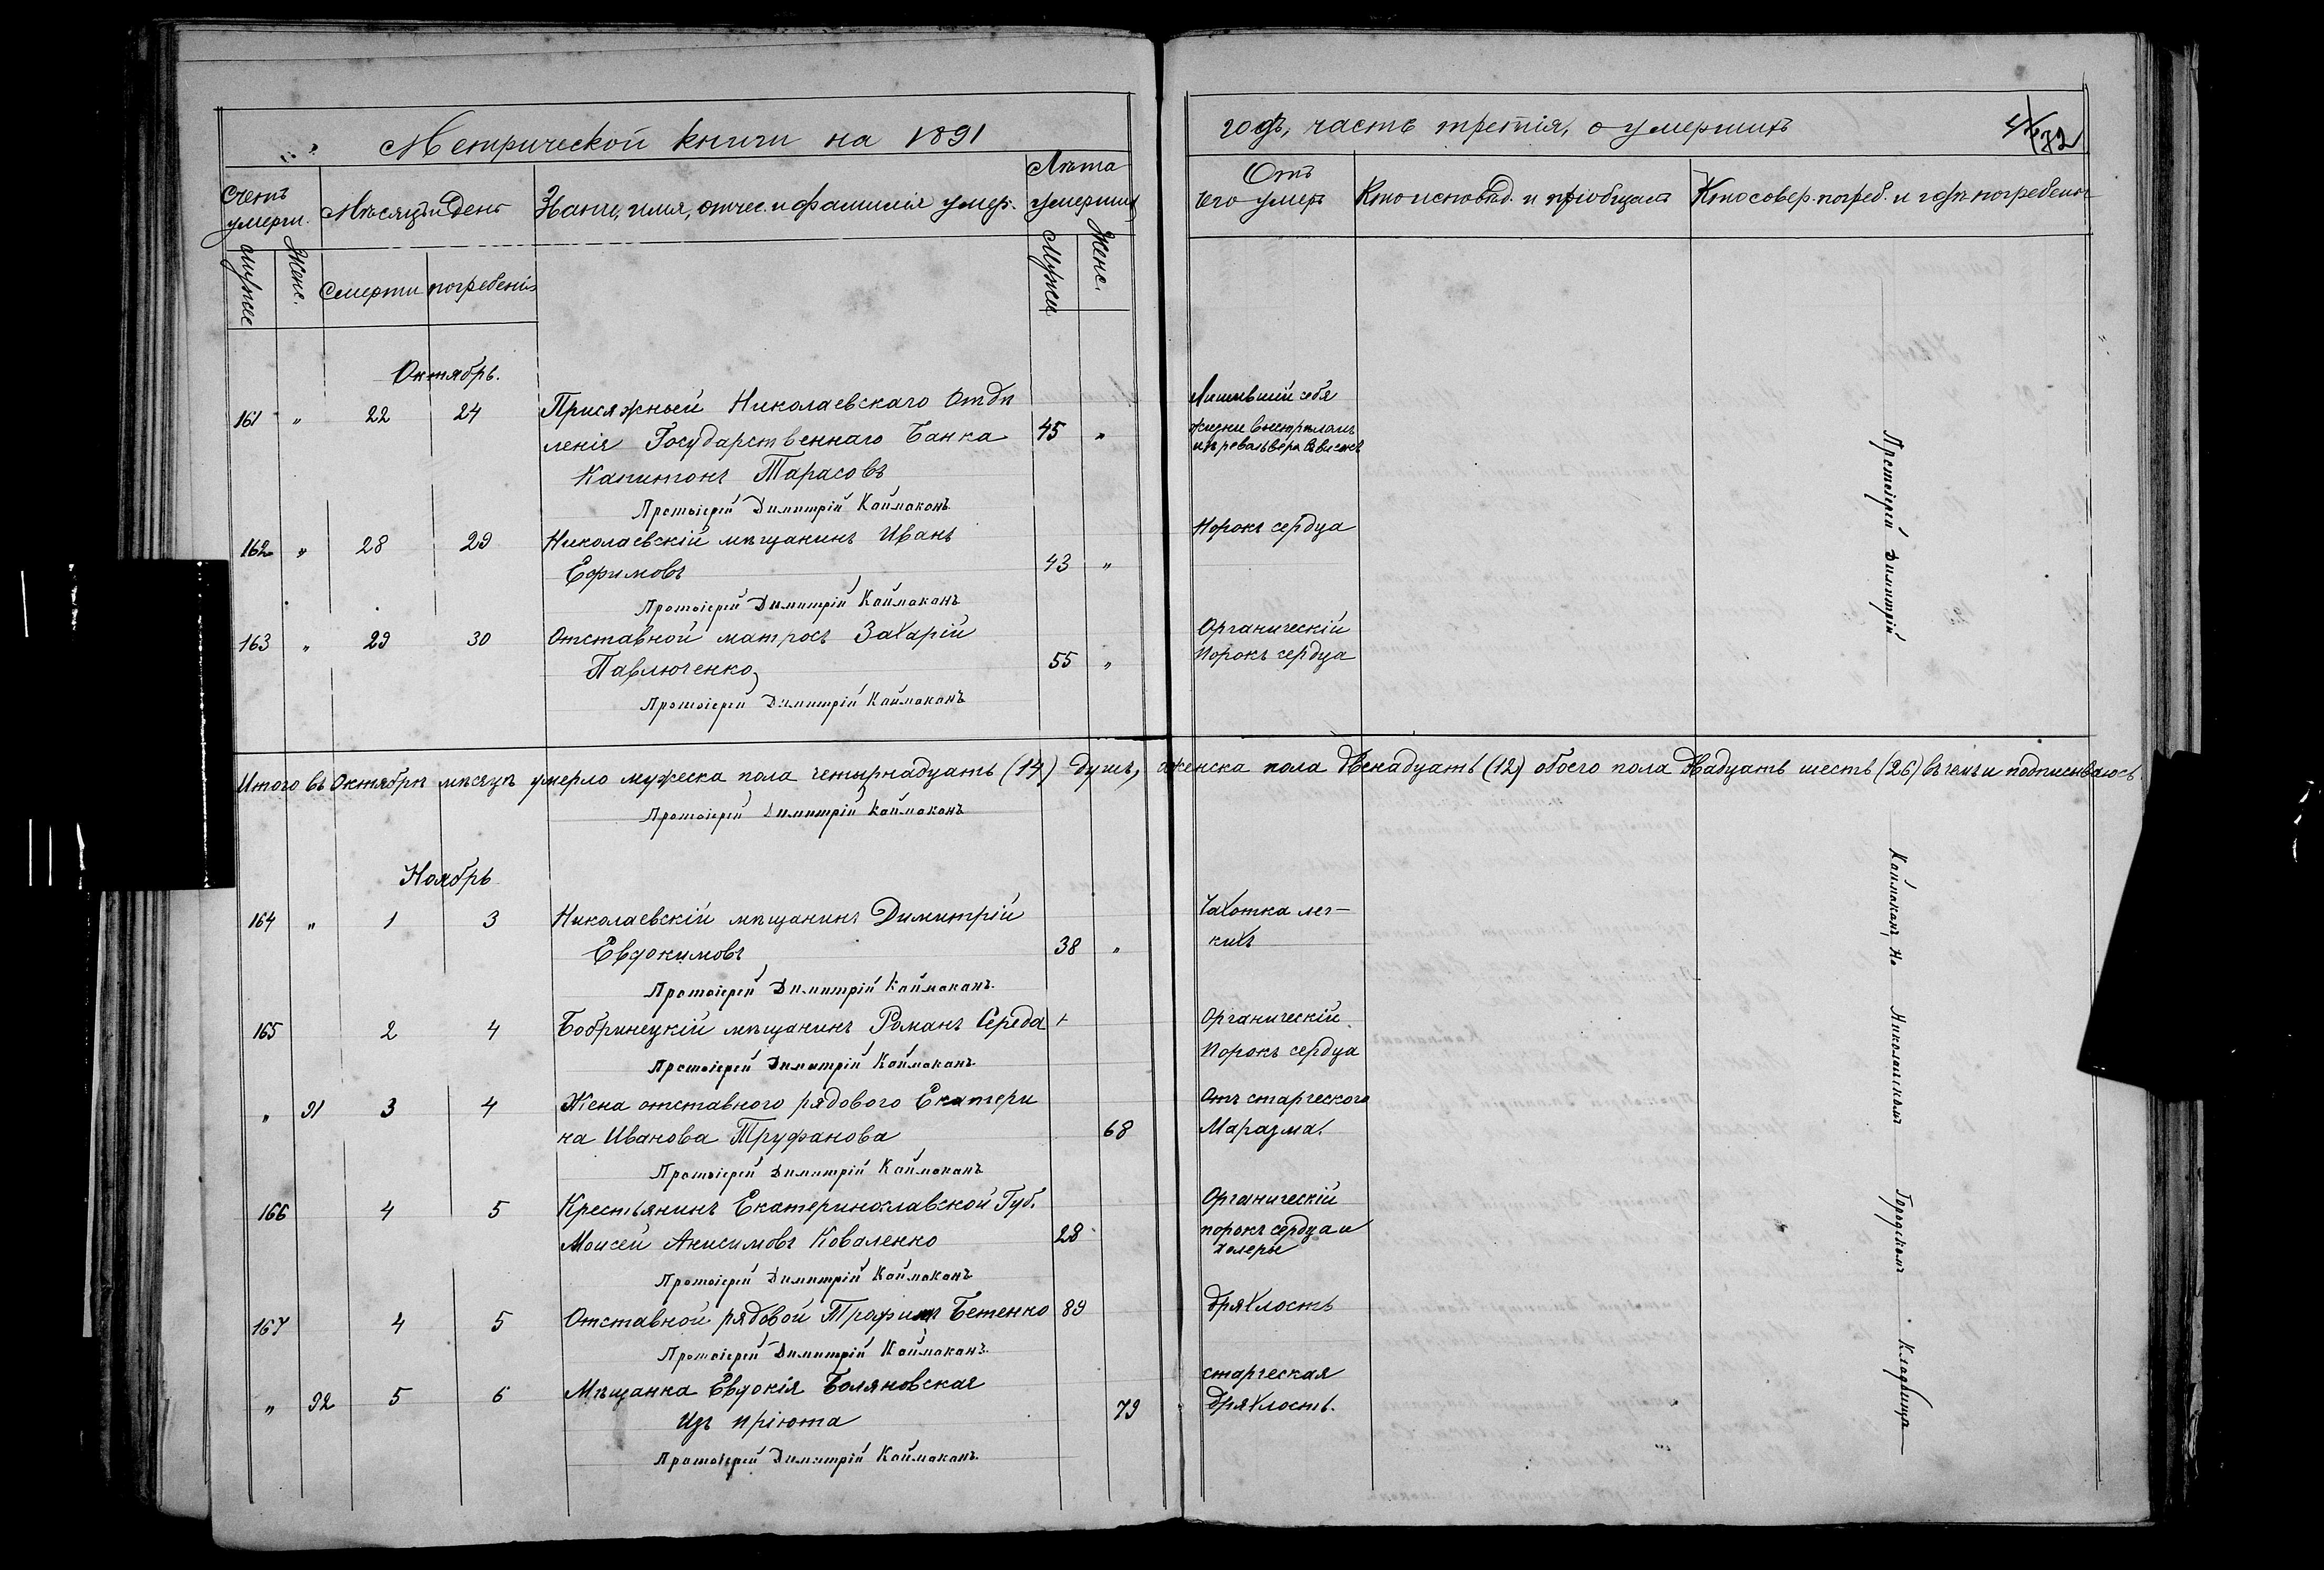 Метрической книги на 1891
годъ, часть третія, о умершихъ
172
Счетъ умерш.
Мѣсяцъ и день
Званіе, имя, отчес. и фамилія умер.
Лѣта умершихъ
Отъ чего умеръ
Кто исповѣд. и пріобщалъ
Кто совер. погреб. и гдѣ погребены
Мужес
Женс.
Смерти
погребенія
Мужес
Женс.
Октябрь.
161 " 22 24 Присяжный Николаевскаго Отдѣ Лишившій себя
ленія Государственнаго Банка 45 " жизни выстрѣломъ
изъ револьвера въ високъ
Капитонъ Тарасовъ
Протоіерей Димитрій Каймаканъ
162 " 28 29 Николаевскій мѣщанинъ Иванъ Порокъ сердца
Ефимовъ 43 "
Протоіерей Димитрій Каймаканъ
163 " 29 30 Отставной матросъ Захарій Органическій
Павлюченко 55 " Порокъ сердца
Протоіерей Димитрій Каймаканъ
Итого въ Октябрѣ мѣсяцѣ умерло мужеска пола четырнадцать (14) душъ, женска пола двенадцать (12) обоего пола двадцать шесть (26) въ чемъ и подписываюсь
Протоіерей Димитрій Каймаканъ
Ноябрь
164 " 1 3 Николаевскій мѣщанинъ Димитрій Чахотка лег-
Евдокимовъ 38 " кихъ
Протоіерей Димитрій Каймаканъ
165 2 4 Бобринецкій мѣщанинъ Романъ Середа + Органическій
Порокъ сердца
Протоіерей Димитрій Каймаканъ
" 91 3 4 Жена отставного рядового Екатери Отъ старческого
на Иванова Труфанова 68 Маразма.
Протоіерей Димитрій Каймаканъ
166 4 5 Крестьянинъ Екатеринославской Губ. Органическій
Моисей Анисимовъ Коваленко 28 порокъ сердца и
холеры
Протоіерей Димитрій Каймаканъ
167 4 5 Отставной рядовой Трофимъ Бетенко 89 дряхлость
Протоіерей Димитрій Каймаканъ
" 92 5 6 Мѣщанка Евдокія Боляновская старческая
изъ пріюта 79 дряхлость.
Протоіерей Димитрій Каймаканъ
Протоіерей Димитрій Каймаканъ, На Николаевскомъ Городскомъ Кладбищѣ